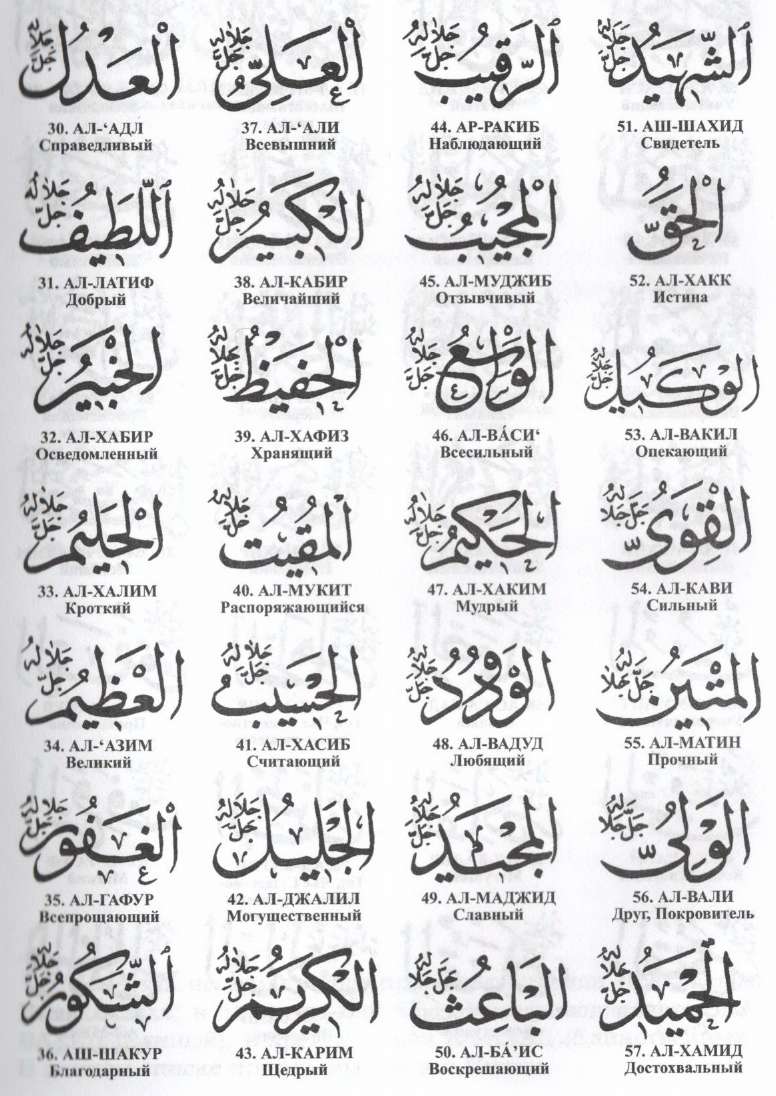 الْعَدْلُ جَلَّ جَلَالُهُ
30. АЛ-‘АДЛ
Справедливый
اَللَّطِيفُ جَلَّ جَلَالُهُ
31. АЛ-ЛАТИФ
Добрый
الْخَبِيرُ جَلَّ جَلَالُهُ
32. АЛ-ХАБИР
Осведомленный
الْحَلِيمُ جَلَّ جَلَالُهُ
33. АЛ-ХАЛИМ
Кроткий
الْعَظِيمُ جَلَّ جَلَالُهُ
34. АЛ-‘АЗИМ
Великий
الْغَفُورُ جَلَّ جَلَالُهُ
35. АЛ-ГАФУР
Всепрощающий
اَلشَّكُورُ جَلَّ جَلَالُهُ
36. АШ-ШАКУР
Благодарный
الْعَلِيُّ جَلَّ جَلَالُهُ
37. АЛ-‘АЛИ
Всевышний
الْكَبِيرُ جَلَّ جَلَالُهُ
38. АЛ-КАБИР
Величайший
الْحَفِيظُ جَلَّ جَلَالُهُ
39. АЛ-ХАФИЗ
Хранящий
الْمُقِيتُ جَلَّ جَلَالُهُ
40. АЛ-МУКИТ
Распоряжающийся
الْحَسِيبُ جَلَّ جَلَالُهُ
41. АЛ-ХАСИБ
Считающий
الْجَلِيلُ جَلَّ جَلَالُهُ
42. АЛ-ДЖАЛИЛ
Могущественный
الْكَرِيمُ جَلَّ جَلَالُهُ
43. АЛ-КАРИМ
Щедрый
اَلرَّقِيبُ جَلَّ جَلَالُهُ
44. АР-РАКИБ
Наблюдающий
الْمُجِيبُ جَلَّ جَلَالُهُ
45. АЛ-МУДЖИБ
Отзывчивый
الْوَاسِعُ جَلَّ جَلَالُهُ
46. АЛ-ВÁСИ‘
Всесильный
الْحَكِيمُ جَلَّ جَلَالُهُ
47. АЛ-ХАКИМ
Мудрый
الْوَدُودُ جَلَّ جَلَالُهُ
48. АЛ-ВАДУД
Любящий
الْمَجِيدُ جَلَّ جَلَالُهُ
49. АЛ-МАДЖИД
Славный
الْبَاعِثُ جَلَّ جَلَالُهُ
50. АЛ-БÁ’ИС
Воскрешающий
اَلشَّهِيدُ جَلَّ جَلَالُهُ
51. АШ-ШАХИД
Свидетель
الْحَقُّ
52. АЛ-ХАКК
Истина
الْوَكِيلُ جَلَّ جَلَالُهُ
53. АЛ-ВАКИЛ
Опекающий
الْقَوِيُّ جَلَّ جَلَالُهُ
54. АЛ-КАВИ
Сильный
الْمَتِينُ جَلَّ جَلَالُهُ
55. АЛ-МАТИН
Прочный
الْوَلِيُّ جَلَّ جَلَالُهُ
56. АЛ-ВАЛИ
Друг, Покровитель
الْحَمِيدُ جَلَّ جَلَالُهُ
57. АЛ-ХАМИД
Достохвальный